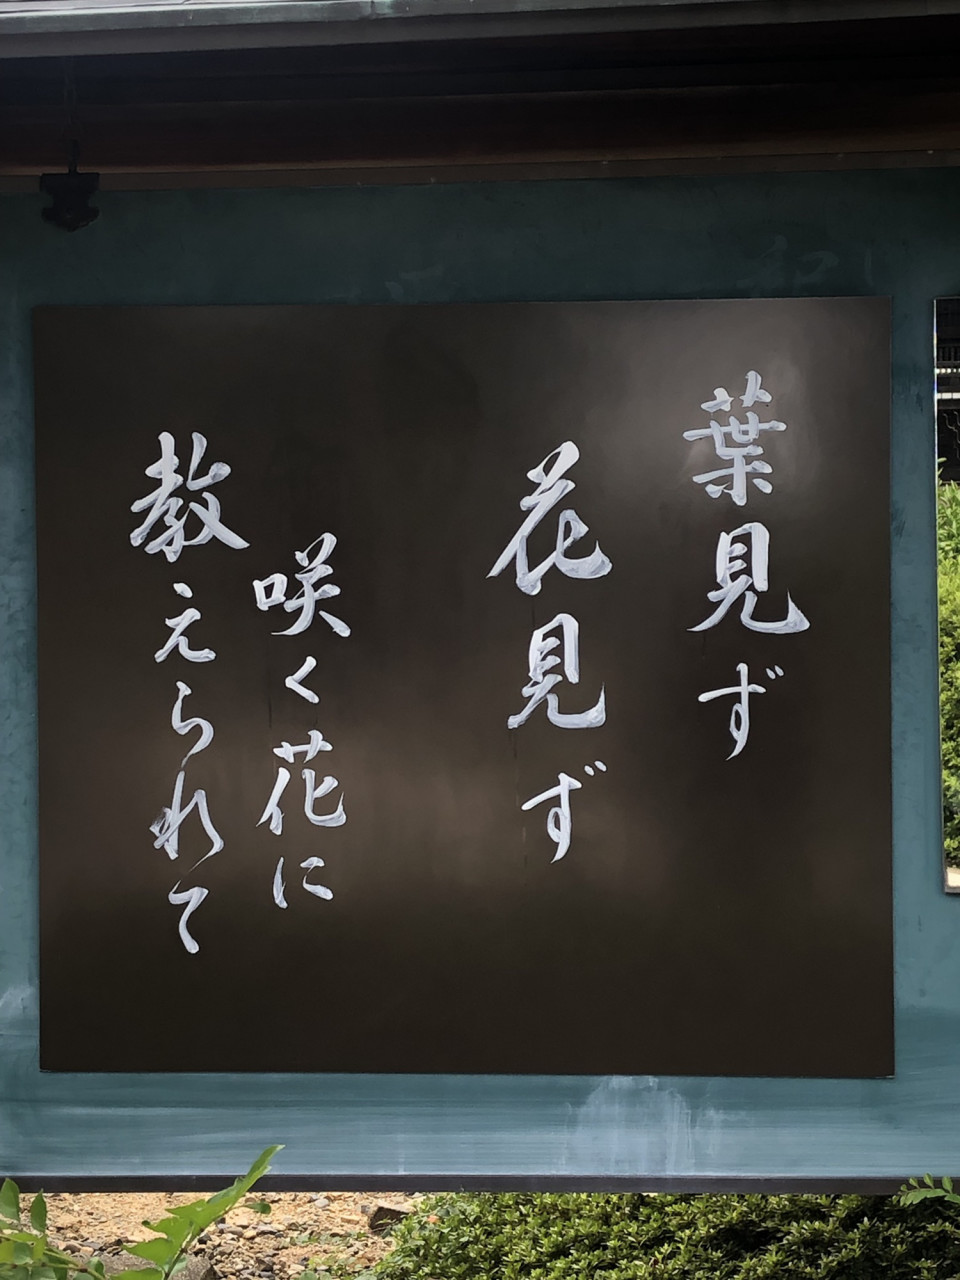 葉見ず
花見ず
咲く花に
教えられて